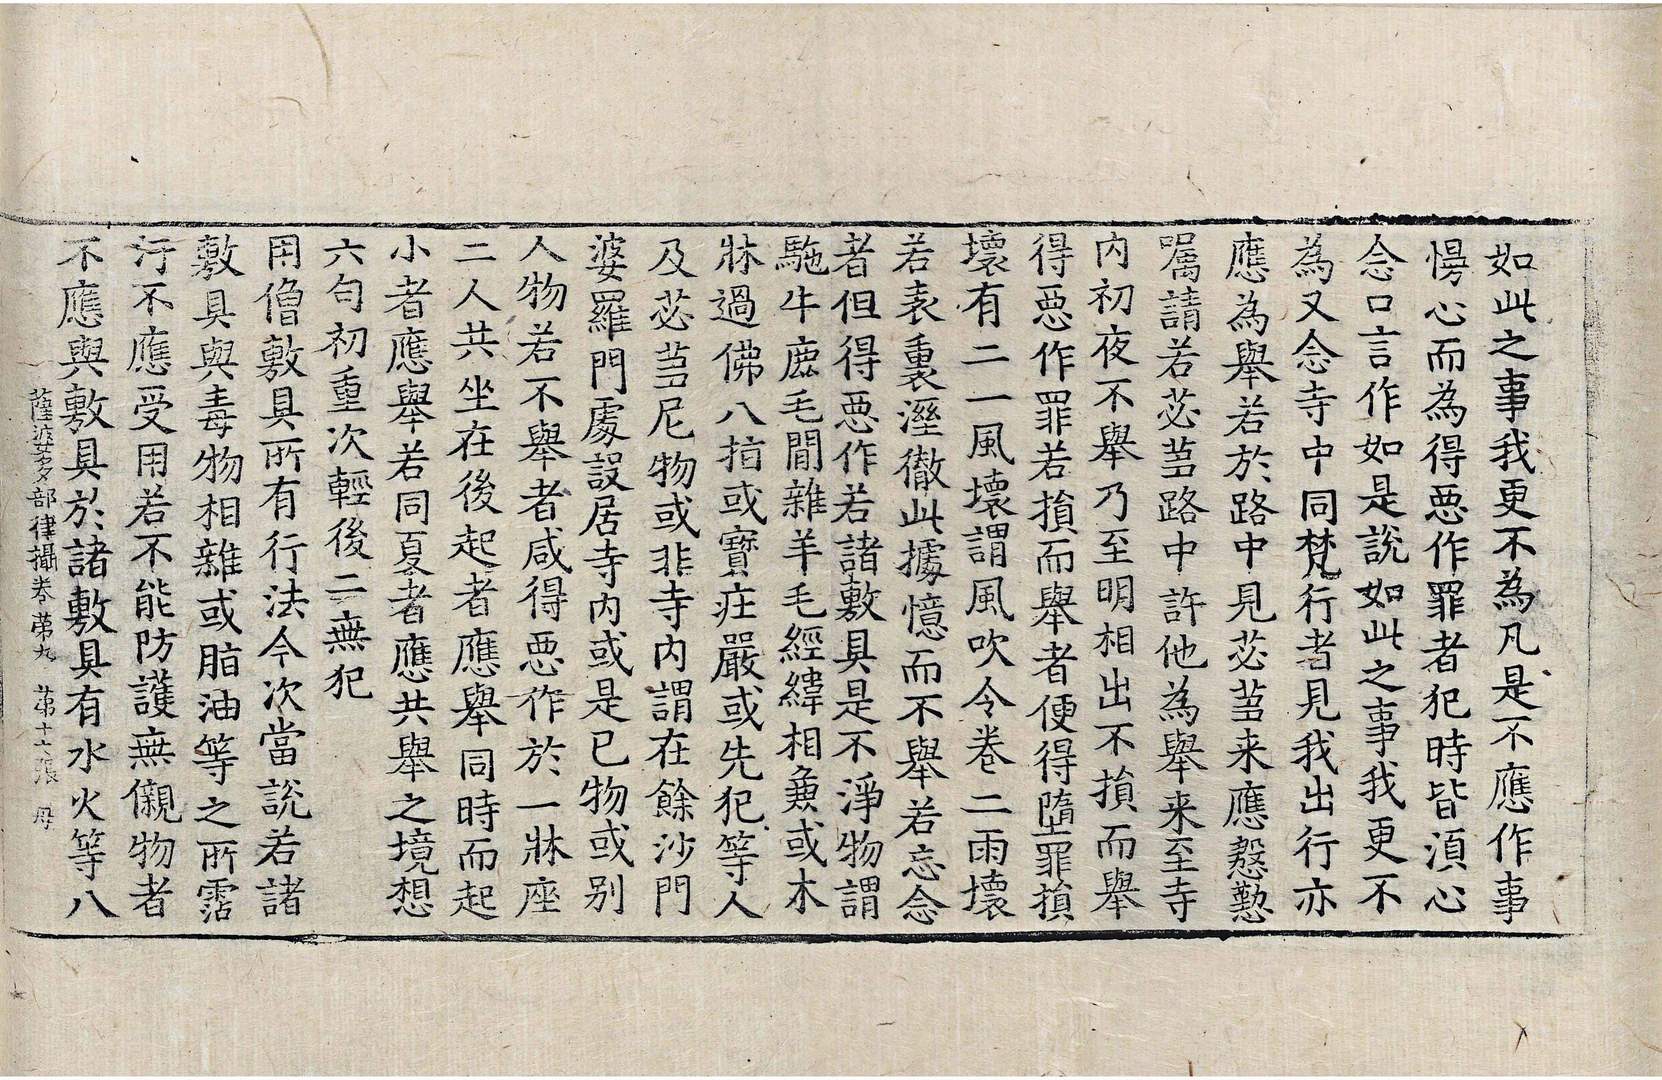 如此之事我更不為凡是不應作事
愣心而為得惡作罪者犯時皆湏心
念口言作如是說如此之事我更不
為又念寺中同梵行者見我出行亦
應為舉若於路中見苾芻来應慇懃
囑請若苾芻路中許他為舉来至寺
内初夜不舉乃至明相出不損而舉
得惡作罪若損而舉者便得墮罪損
壞有二一風壞謂風吹令卷二雨壞
若表裏溼徹此據憶而不舉若忘念
者但得惡作若諸敷具是不淨物謂
駞牛鹿毛閒雜羊毛經緯相兼或木
牀過佛八指或寶莊嚴或先犯等人
及苾芻尼物或非寺内謂在餘沙門
婆羅門處設居寺内或是已物或别
人物若不舉者咸得惡作於一牀座
二人共坐在後起者應舉同時而起
小者應舉若同夏者應共舉之境想
六句初重次輕後二無犯
用僧敷具所有行法今次當說若諸
敷具與毒物相雜或脂油等之所霑
汙不應受用若不能防護無儭物者
不應與敷具於諸敷具有水火等八
薩婆多部律攝卷第九　第十六張　母